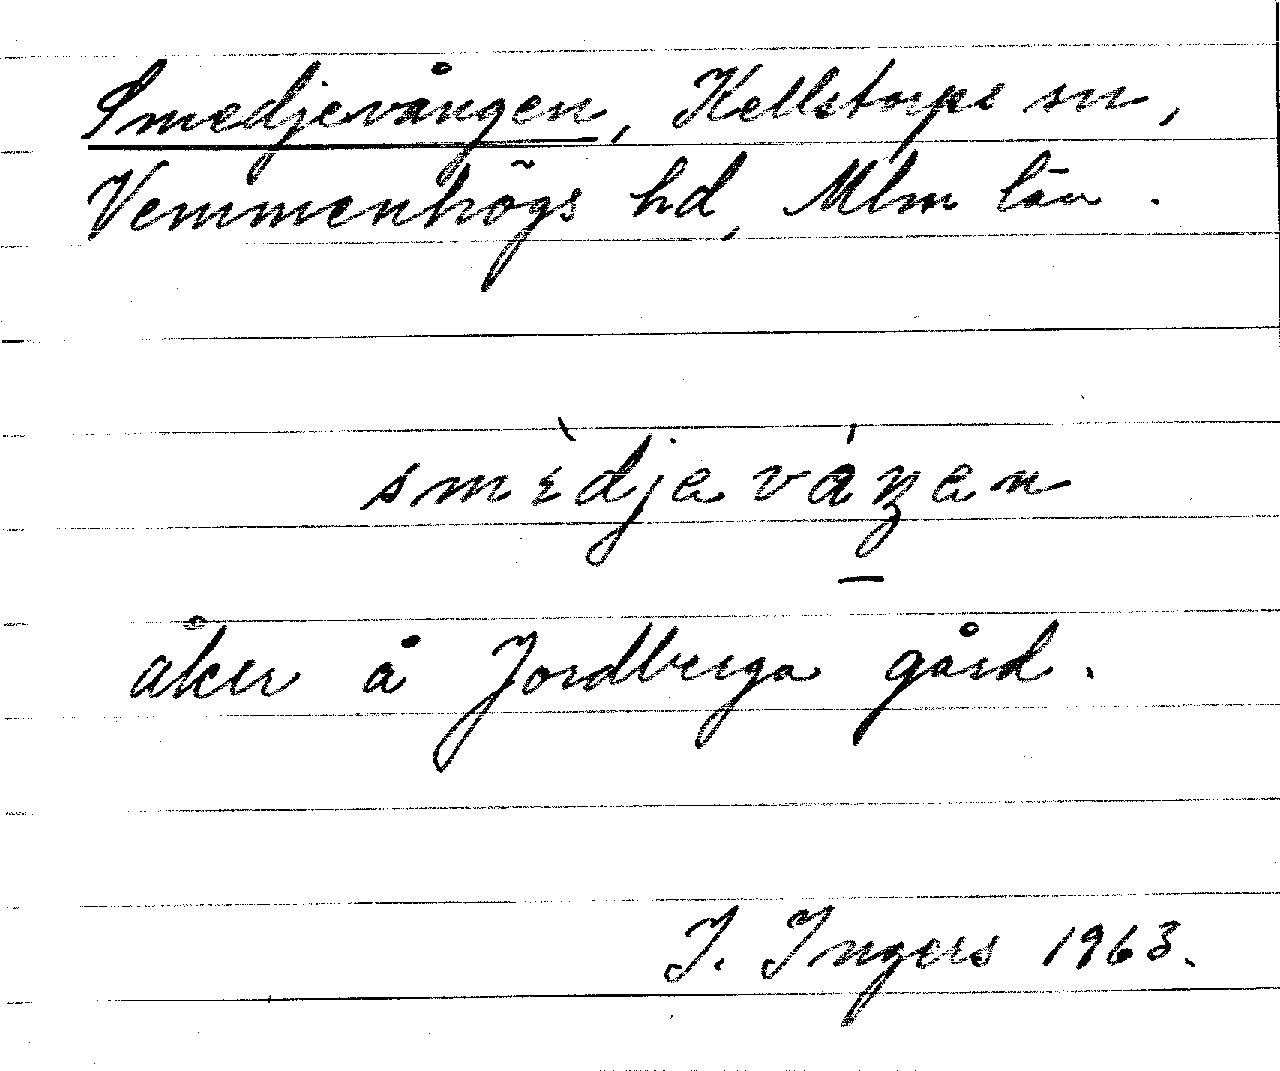 Smedjevången, Kellstorps sn,
Vemmenhögs hd, Mlm län.
smɛ̀djaváŋen
åker å Jordberga gård.
I. Ingers 1963.